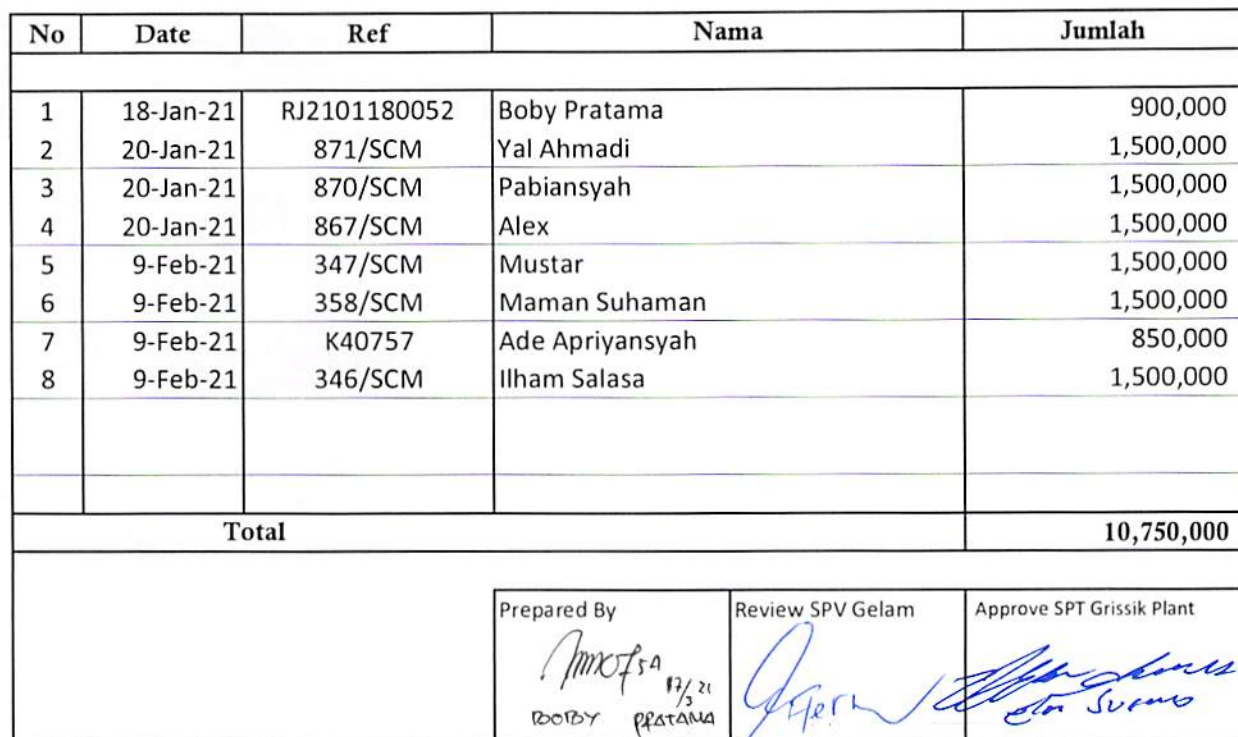 No Date Ref Nama Jumlah
1 18-Jan-21 RJ2101180052 Boby Pratama 900,000
2 20-Jan-21 871/SCM Yal Ahmadi 1,500,000
3 20-Jan-21 870/SCM Pabiansyah 1,500,000
4 20-Jan-21 867/SCM Alex 1,500,000
5 9-Feb-21 347/SCM Mustar 1,500,000
6 9-Feb-21 358/SCM Maman Suhaman 1,500,000
7 9-Feb-21 K40757 Ade Apriyansyah 850,000
8 9-Feb-21 346/SCM Ilham Salasa 1,500,000
Total 10,750,000
Prepared By Review SPV Gelam Approve SPT Grissik Plant
17/3 21
BOBY PRATAMA